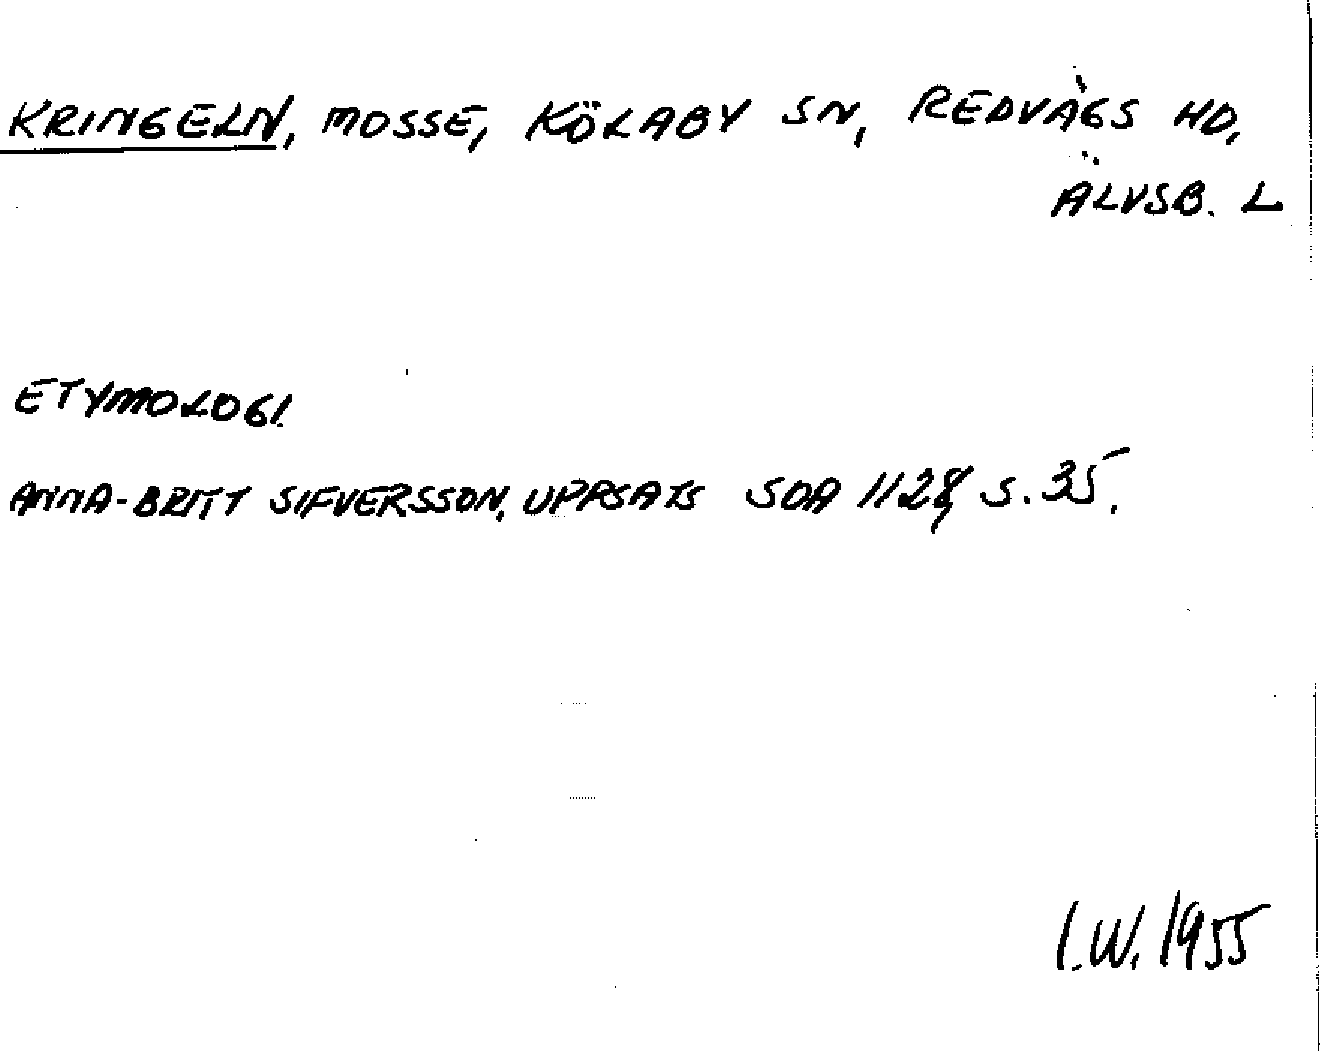 KRINGELN, MOSSE, KÖLABY SN, REDVÄGS HD,
ÄLVSB. L
ETYMOLOGI.
ANNA-BRITT SIFVERSSON, UPPSATS SOA 1128, S. 35.
I.W. 1955